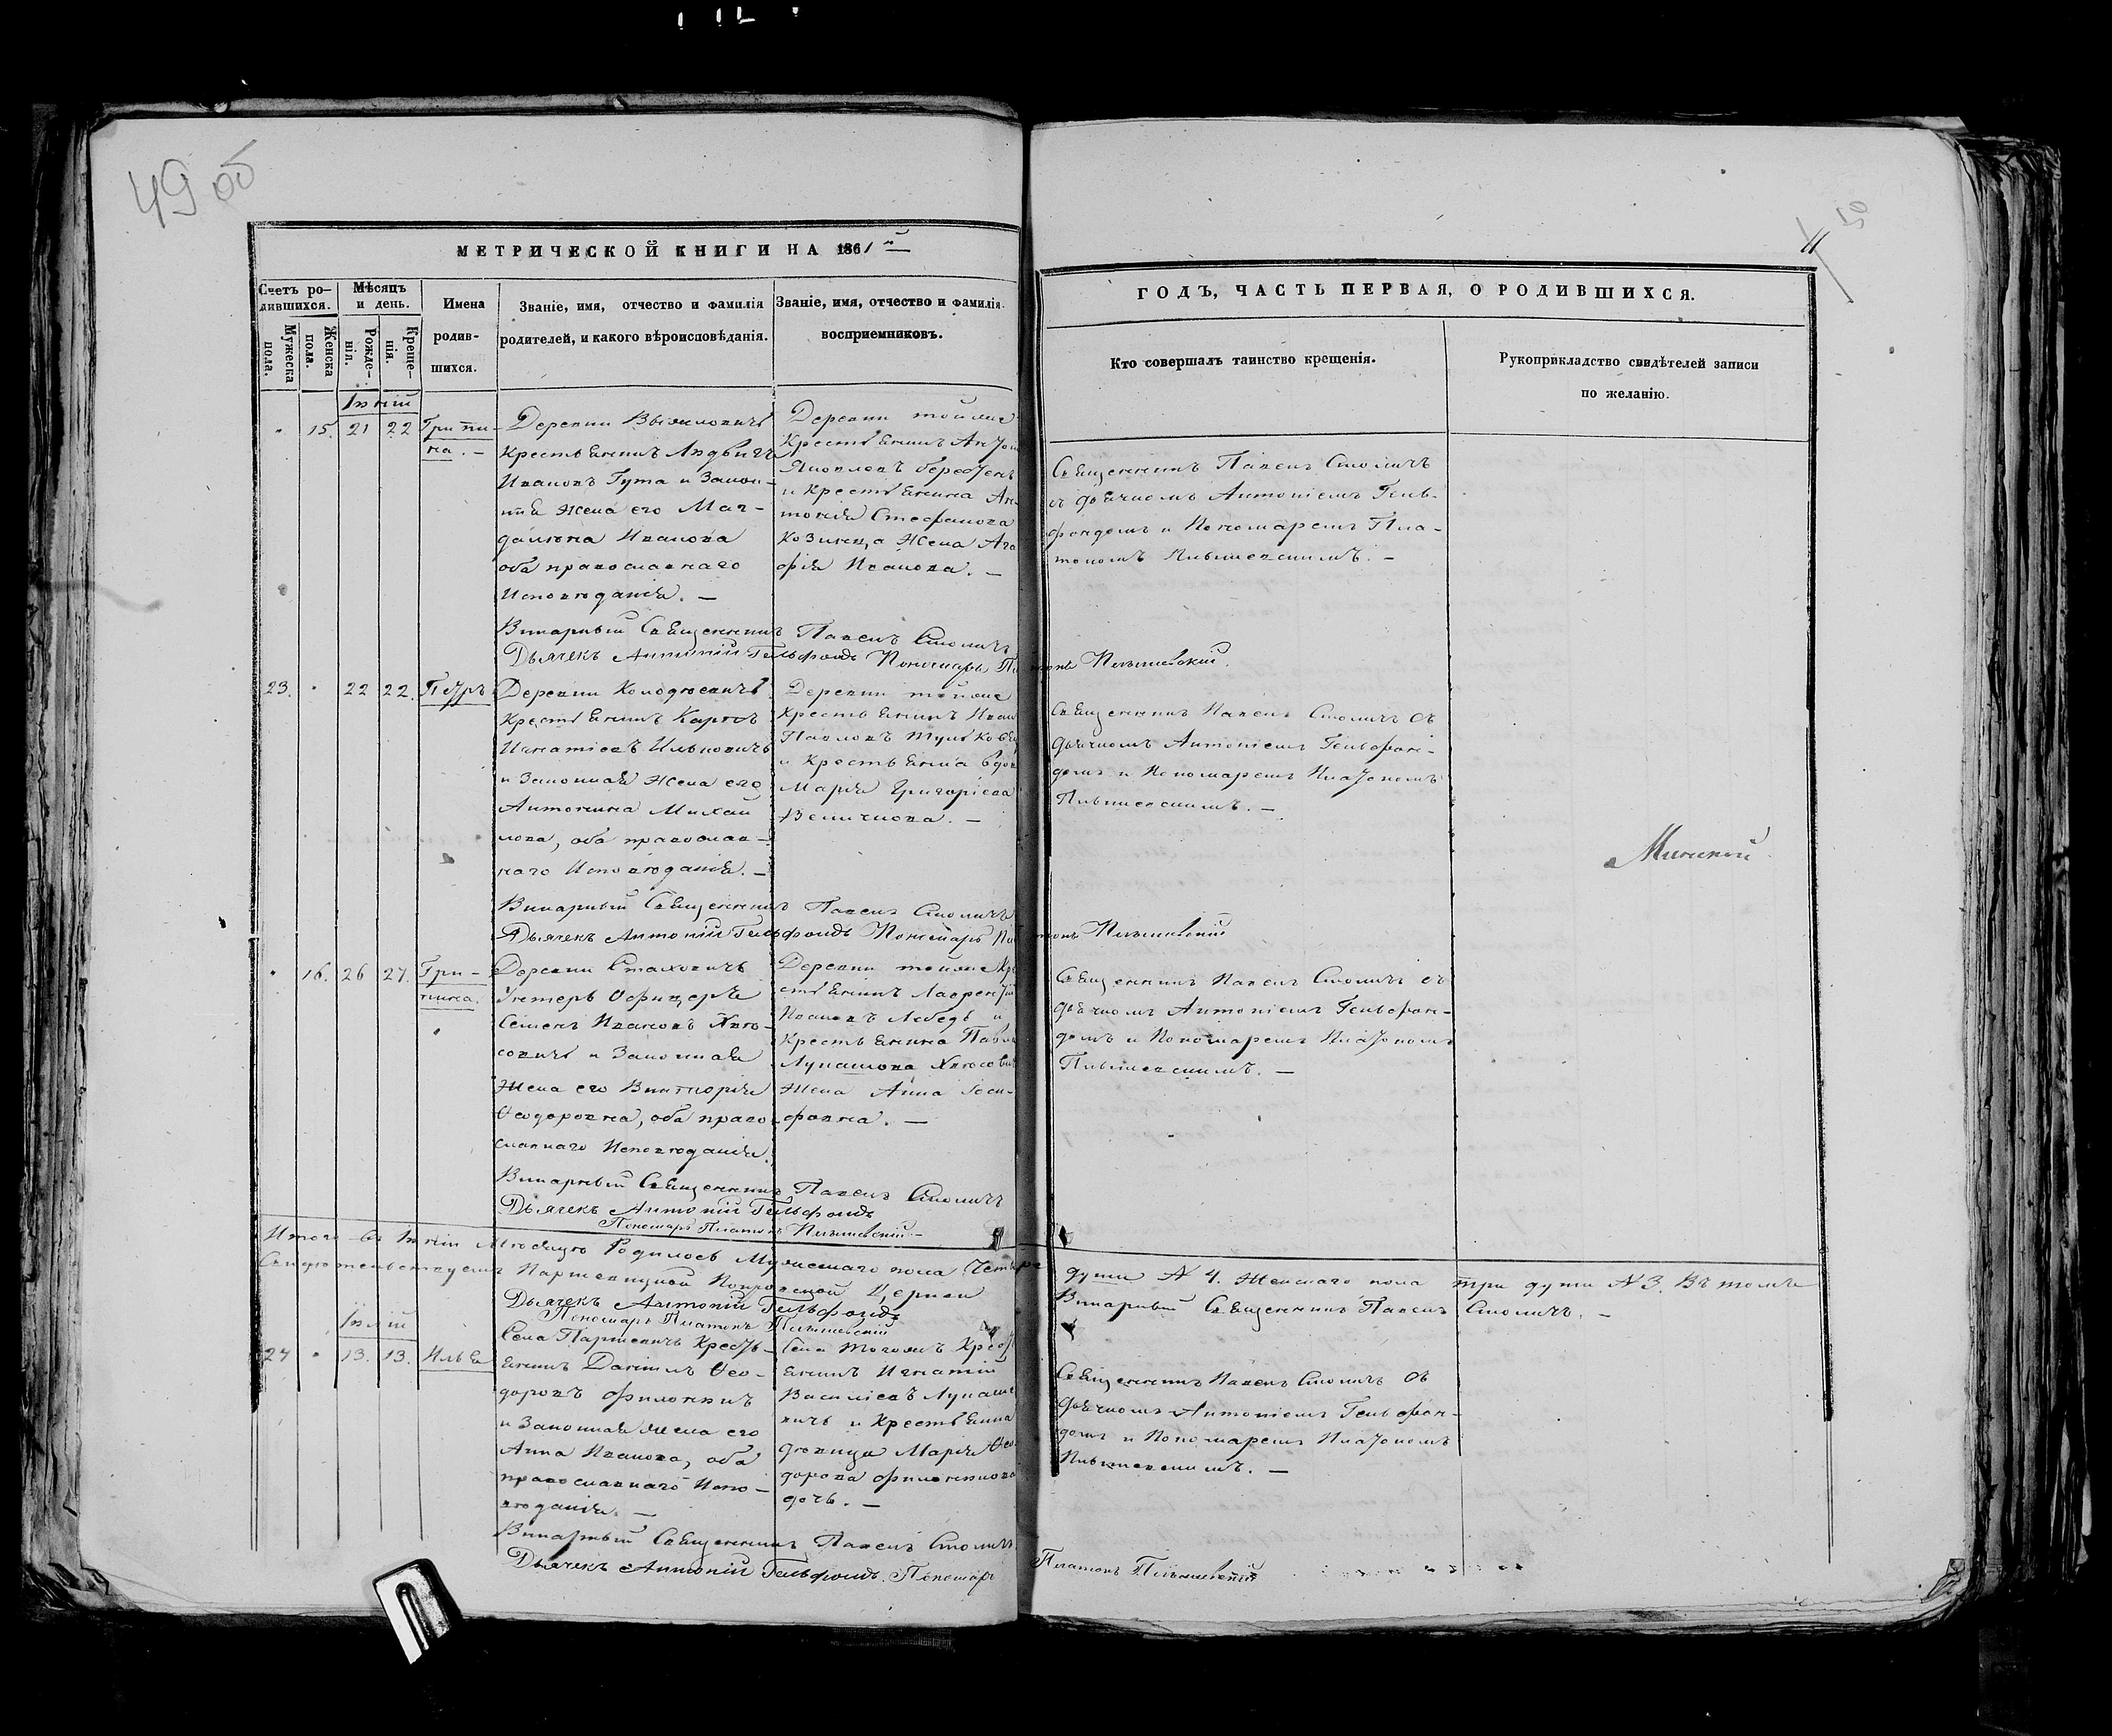 49 об
50
11
МЕТРИЧЕСКОЙ КНИГИ НА 1861й
ГОДЪ, ЧАСТЬ ПЕРВАЯ, О РОДИВШИХСЯ.
Счетъ ро-
дившихся.
Мужеска пола.
Женска пола.
Мѣсяцъ
и день.
Рожде-
нія.
Креще-
нія.
Имена
родив-
шихся.
Званіе, имя, отчество и фамилія
родителей, и какого вѣроисповѣданія.
Званіе, имя, отчество и фамилія
воспріемниковъ.
Кто совершалъ таинство крещенія.
Рукоприкладство свидѣтелей записи
по желанію.
Іюній
15. 21 22 Грипи-
на. —
Деревни
Крестьянинъ Людвигъ
Ивановъ Гута и Закон-
ная жена его Маг-
далина Иванова
оба православнаго
Исповѣданія. —
Деревни тойже
Крестьянинъ Антон
Яковлевъ
и Крестьянина Ан-
тонія Стефанова
Козинца Жена Ага
фія Иванова. —
Священникъ Павелъ Смоличъ
съ дьячкомъ Антоніемъ Гель-
фондомъ и Пономаремъ Пла-
тономъ
Викарный Священникъ Павелъ Смоличъ
Дьячекъ Антоній Гельфондъ Пономарь
23. 22 22. Петръ
Деревни
Крестьянинъ Карпъ
Игнатіевъ Ильковичъ
и Законная Жена его
Антонина Михаи
лова, оба православ-
наго Исповѣданія. —
Деревни тойже
Крестьянинъ Иван
Павловъ
и Крестьянка вдов
Марія Григоріева
Величкова. —
Священникъ Павелъ Смоличъ съ
дьячкомъ Антоніемъ Гельфон-
домъ и Пономаремъ Платономъ
Минской
Викарный Священникъ Павелъ Смоличъ
Дьячекъ Антоній Гельфондъ Пономарь
16. 26 27. Гри-
пина.
Деревни Стаховичъ
Унтеръ Офицеръ
Семенъ Ивановъ
и Законная
Жена его Викторія
Ѳеодоровна, оба право
славнаго Исповѣданія.
Деревни тойже Кре
стьянинъ Лаврентій
Ивановъ Лебедь и
Крестьянина Павла
Лукашова
Жена Анна Іоси-
фовна. —
Священникъ Павелъ Смоличъ съ
дьячкомъ Антоніемъ Гельфон-
домъ и Пономаремъ Платономъ
Викарный Священникъ Павелъ Смоличъ
Дьячекъ Антоній Гельфондъ
Пономарь Платонъ
Итого въ Іюніи Мѣсяцѣ Родилось Мужескаго пола Четыре души № 4. Женскаго пола три души № 3. Въ томъ
Свидѣтельствуемъ Паршевицкой Покровской Церкви Викарный Священникъ Павелъ Смоличъ. —
Дьячекъ Антоній Гельфондъ
Пономарь Платонъ
Іюлій
24 13. 13. Илья
Села Паршевичъ Кресть-
янинъ Даніилъ Ѳео-
доровъ
и Законная жена его
Анна Иванова, оба
православнаго Испо-
вѣданія. —
Села тогожъ Крест
янинъ Игнатій
Василіевъ Лукаше
вичъ и Крестьянка
дѣвица Марія Ѳео-
дорова
дочь. —
Священникъ Павелъ Смоличъ съ
дьячкомъ Антоніемъ Гельфон-
домъ и Пономаремъ Платономъ
Викарный Священникъ Павелъ Смоличъ
Дьячекъ Антоній Гельфондъ. Пономарь Платонъ